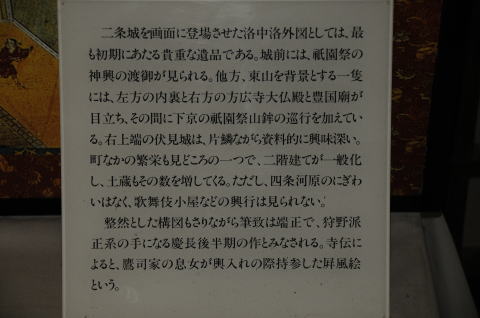 二条城を画面に登場させた洛中洛外図としては、最
も初期にあたる貴重な遺品である。城前には、祇園祭の
神輿の渡御が見られる。他方、東山を背景とする一隻
には、左方の内裏と右方の方広寺大仏殿と豊国廟が
目立ち、その間に下京の祇園祭山鉾の巡行を加えてい
る。右上端の伏見城は、片鱗ながら資料的に興味深い。
町なかの繁栄も見どころの一つで、二階建てが一般化
し、土蔵もその数を増してくる。ただし、四条河原のにぎわ
いはなく、歌舞伎小屋などの興行は見られない。
整然とした構図もさりながら筆致は端正で、狩野派
正系の手になる慶長後半期の作とみなされる。寺伝に
よると、鷹司家の息女が輿入れの際持参した屏風絵
という。